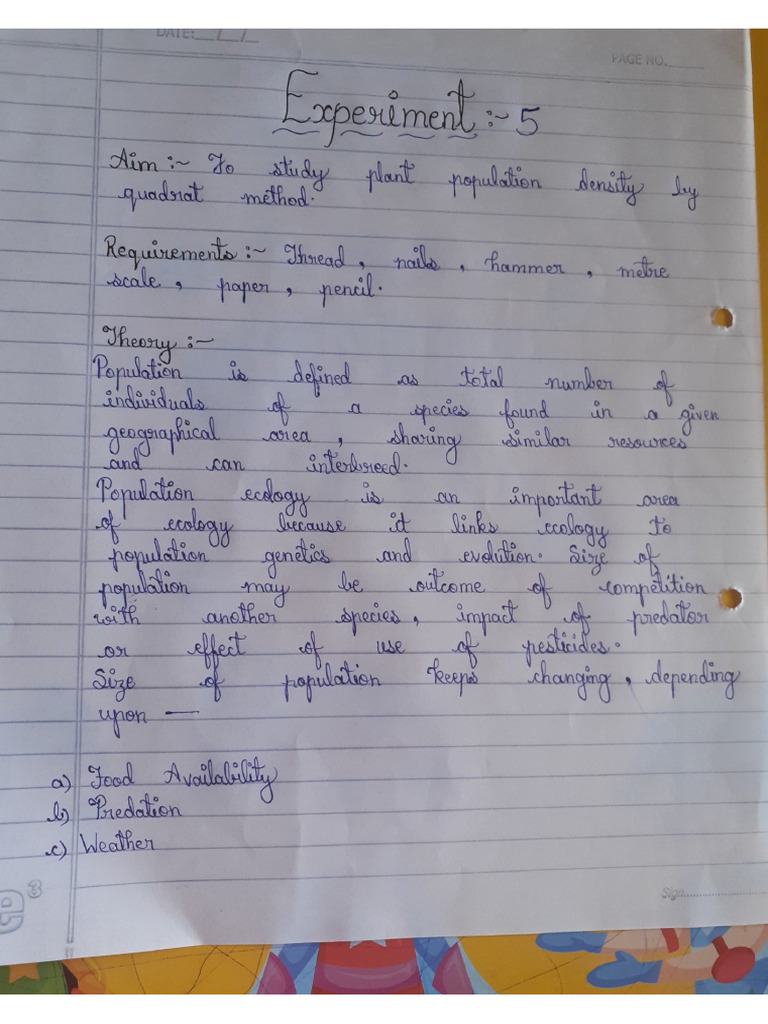 DATE: __/__/__
PAGE NO.
Experiment :- 5
Aim :- To study plant population density by
quadrat method.
Requirements :- Thread, nails, hammer, metre
scale, paper, pencil.
Theory :-
Population is defined as total number of
individuals of a species found in a given
geographical area, sharing similar resources
and can interbreed.
Population ecology is an important area
of ecology because it links ecology to
population genetics and evolution. Size of
population may be outcome of competition
with another species, impact of predator
or effect of use of pesticides.
Size of population keeps changing, depending
upon —
a) Food Availability
b) Predation
c) Weather
3
Sign.